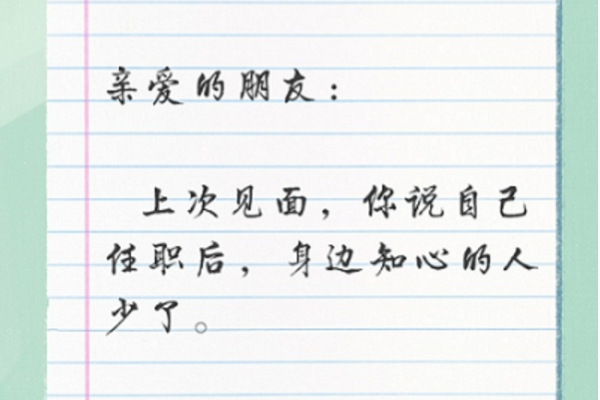 亲爱的朋友：
上次见面，你说自己
任职后，身边知心的人
少了。